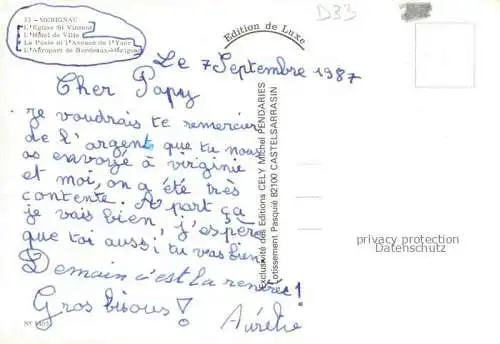 33 - MERIGNAC
L'Eglise St Vincent
L'Hôtel de Ville
La Poste et l'Avenue de l'Yser
L'Aéroport de Bordeaux-Mérignac
Edition de Luxe
D33
Le 7 Septembre 1987
Cher Papy
je voudrais te remercier
de l'argent que tu nous
as envoyé à virginie
et moi, on a été très
contente. A part ça
je vais bien, j'espère
que toi aussi tu vas bien.
Demain c'est la rentrée !
Gros bisous !
Aurélie
Exclusivité des Editions CELY Michel PENDARIES
Lotissement Pasquié 82100 CASTELSARRASIN
privacy protection
Datenschutz